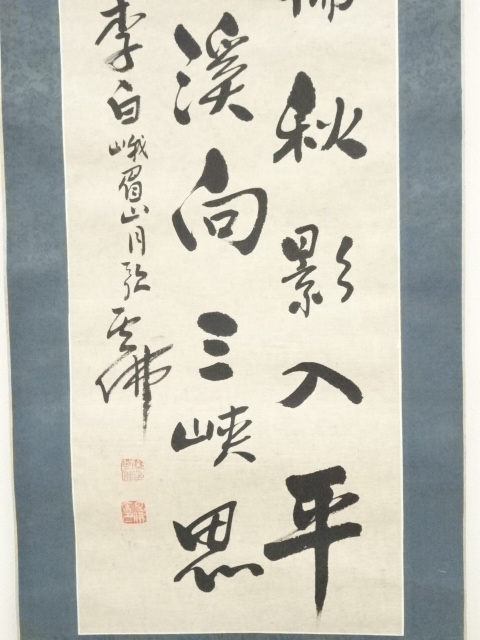 秋影入平
溪向三峽思
李白峨眉山月歌 佛